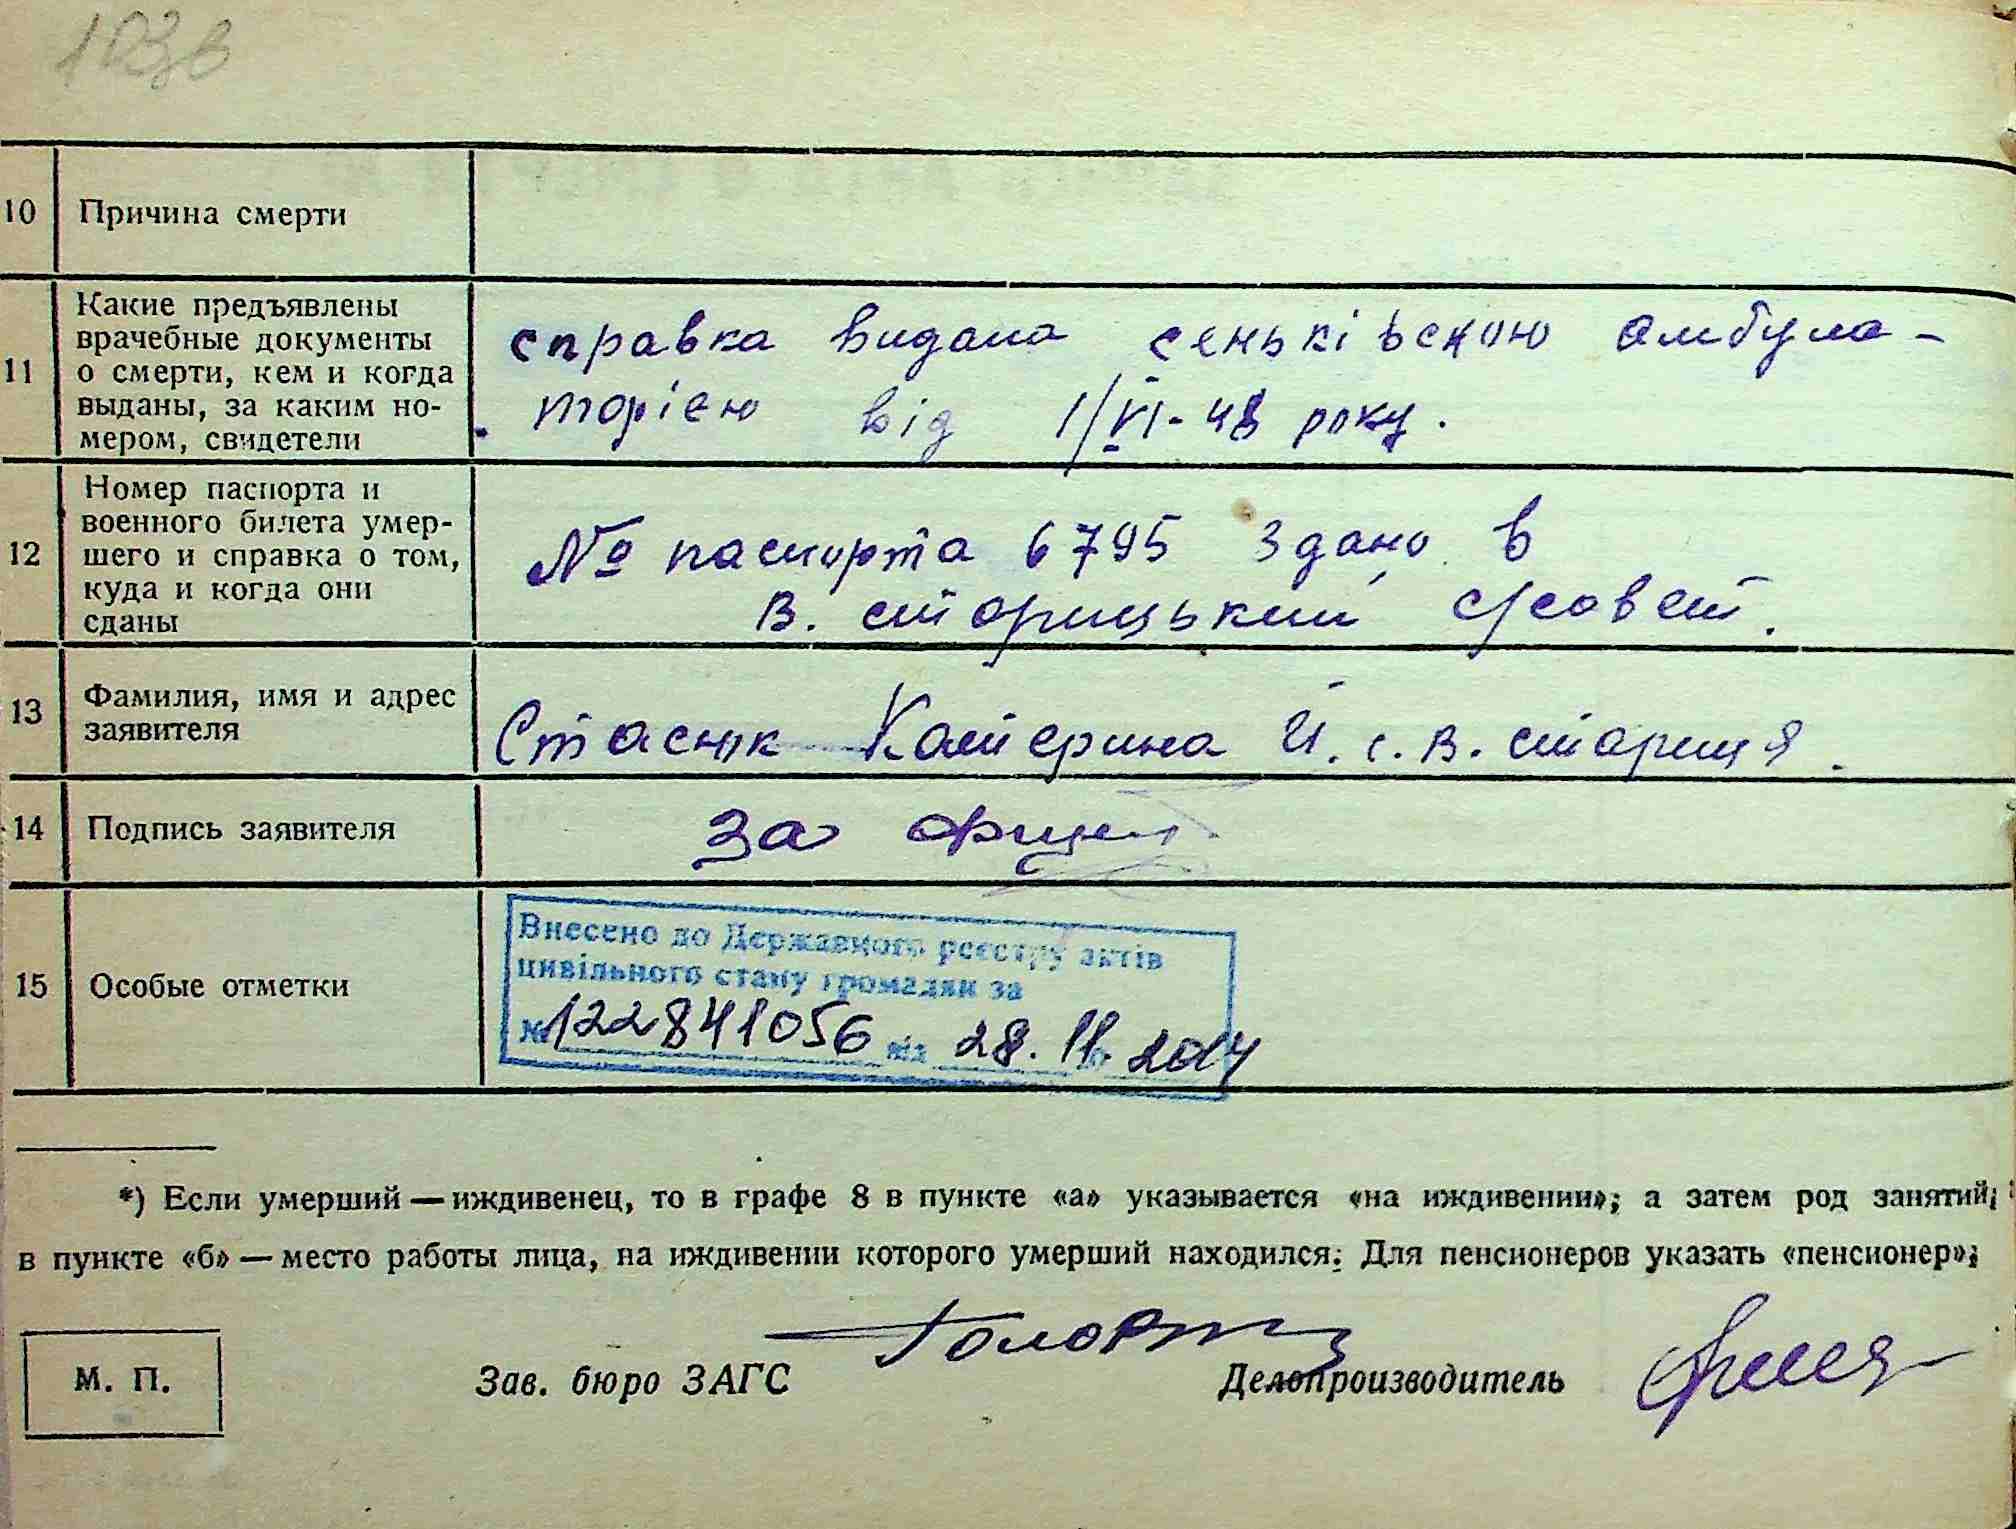 10 Причина смерти
11 Какие предъявлены
врачебные документы
о смерти, кем и когда
выданы, за каким но-
мером, свидетели
справка видана сеньківською амбула-
торією від 1/VI-48 року.
12 Номер паспорта и
военного билета умер-
шего и справка о том,
куда и когда они
сданы
№ паспорта 6795 здано в
В. сторицький с/совет.
13 Фамилия, имя и адрес
заявителя
Стасюк Катерина Й. с. В. сториця.
14 Подпись заявителя
за
15 Особые отметки
Внесено до Державного реєстру актів
цивільного стану громадян за
№ 122841056 від 28.11.2014
*) Если умерший — иждивенец, то в графе 8 в пункте «а» указывается «на иждивении»; а затем род занятий;
в пункте «б» — место работы лица, на иждивении которого умерший находился. Для пенсионеров указать «пенсионер»;
М. П.
Зав. бюро ЗАГС
Делопроизводитель